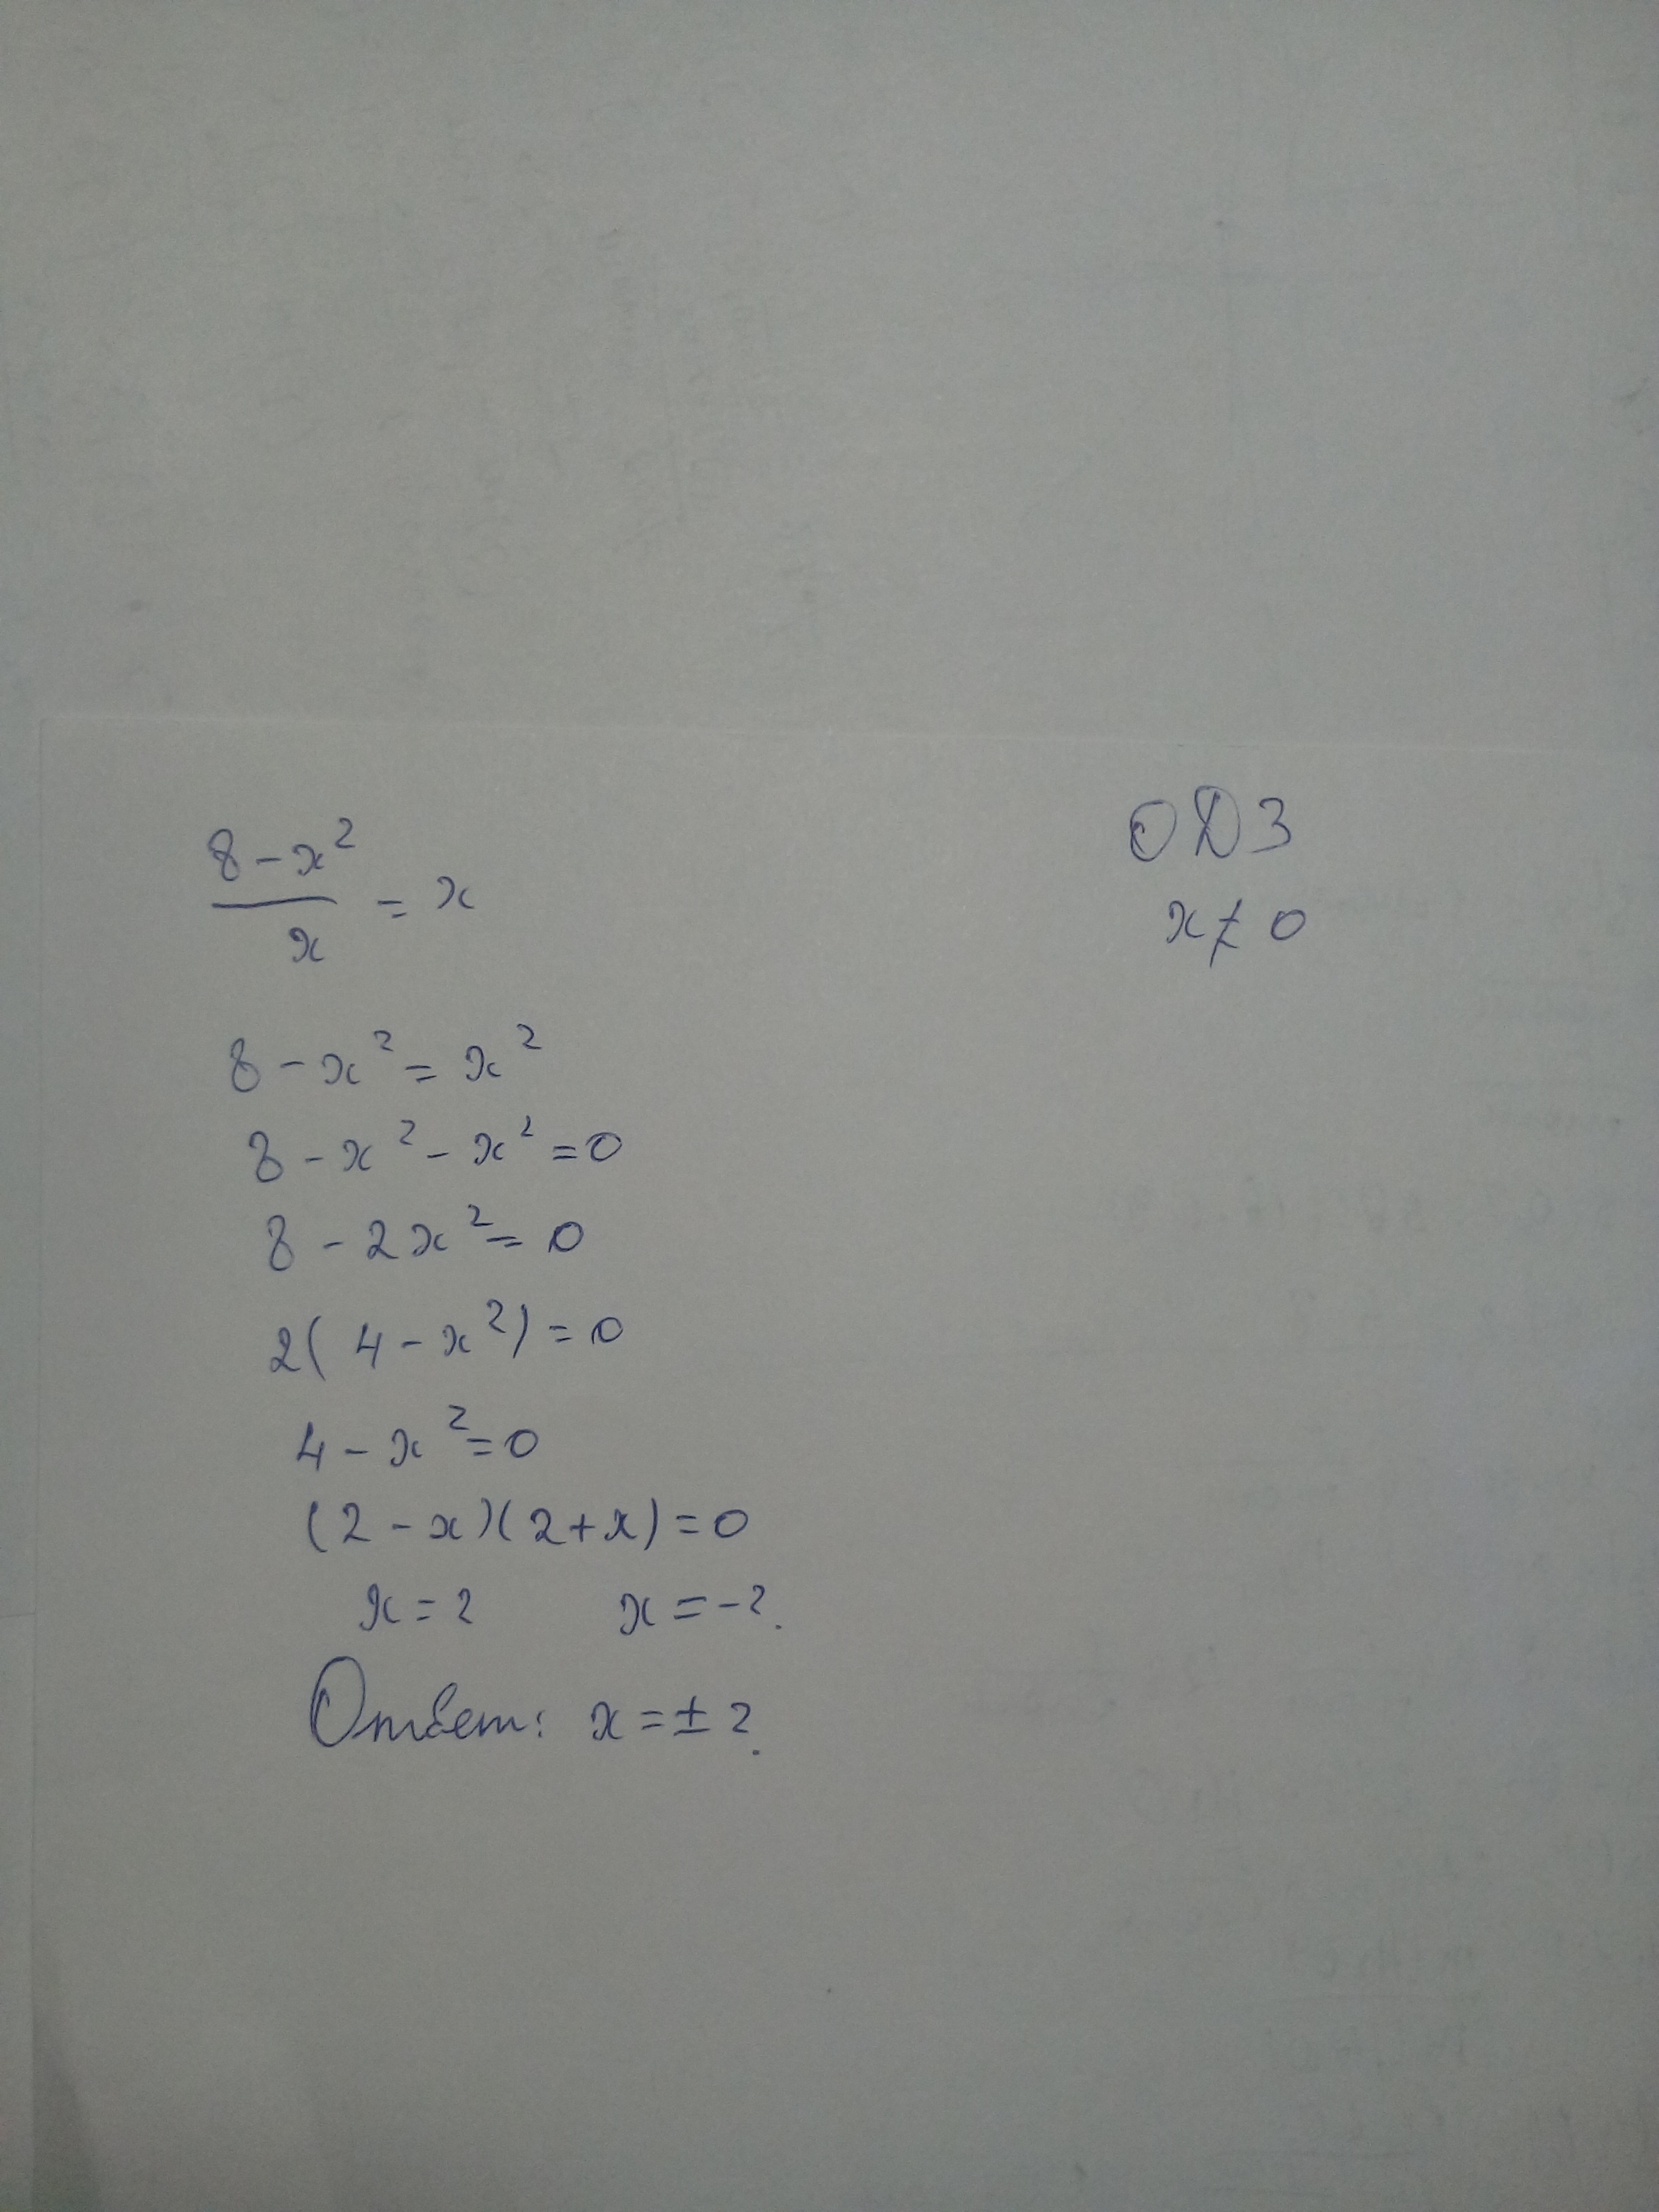 (8-x²)/x = x
ОДЗ
x≠0
8-x²=x²
8-x²-x²=0
8-2x²=0
2(4-x²)=0
4-x²=0
(2-x)(2+x)=0
x=2 x=-2.
Ответ: x=±2.